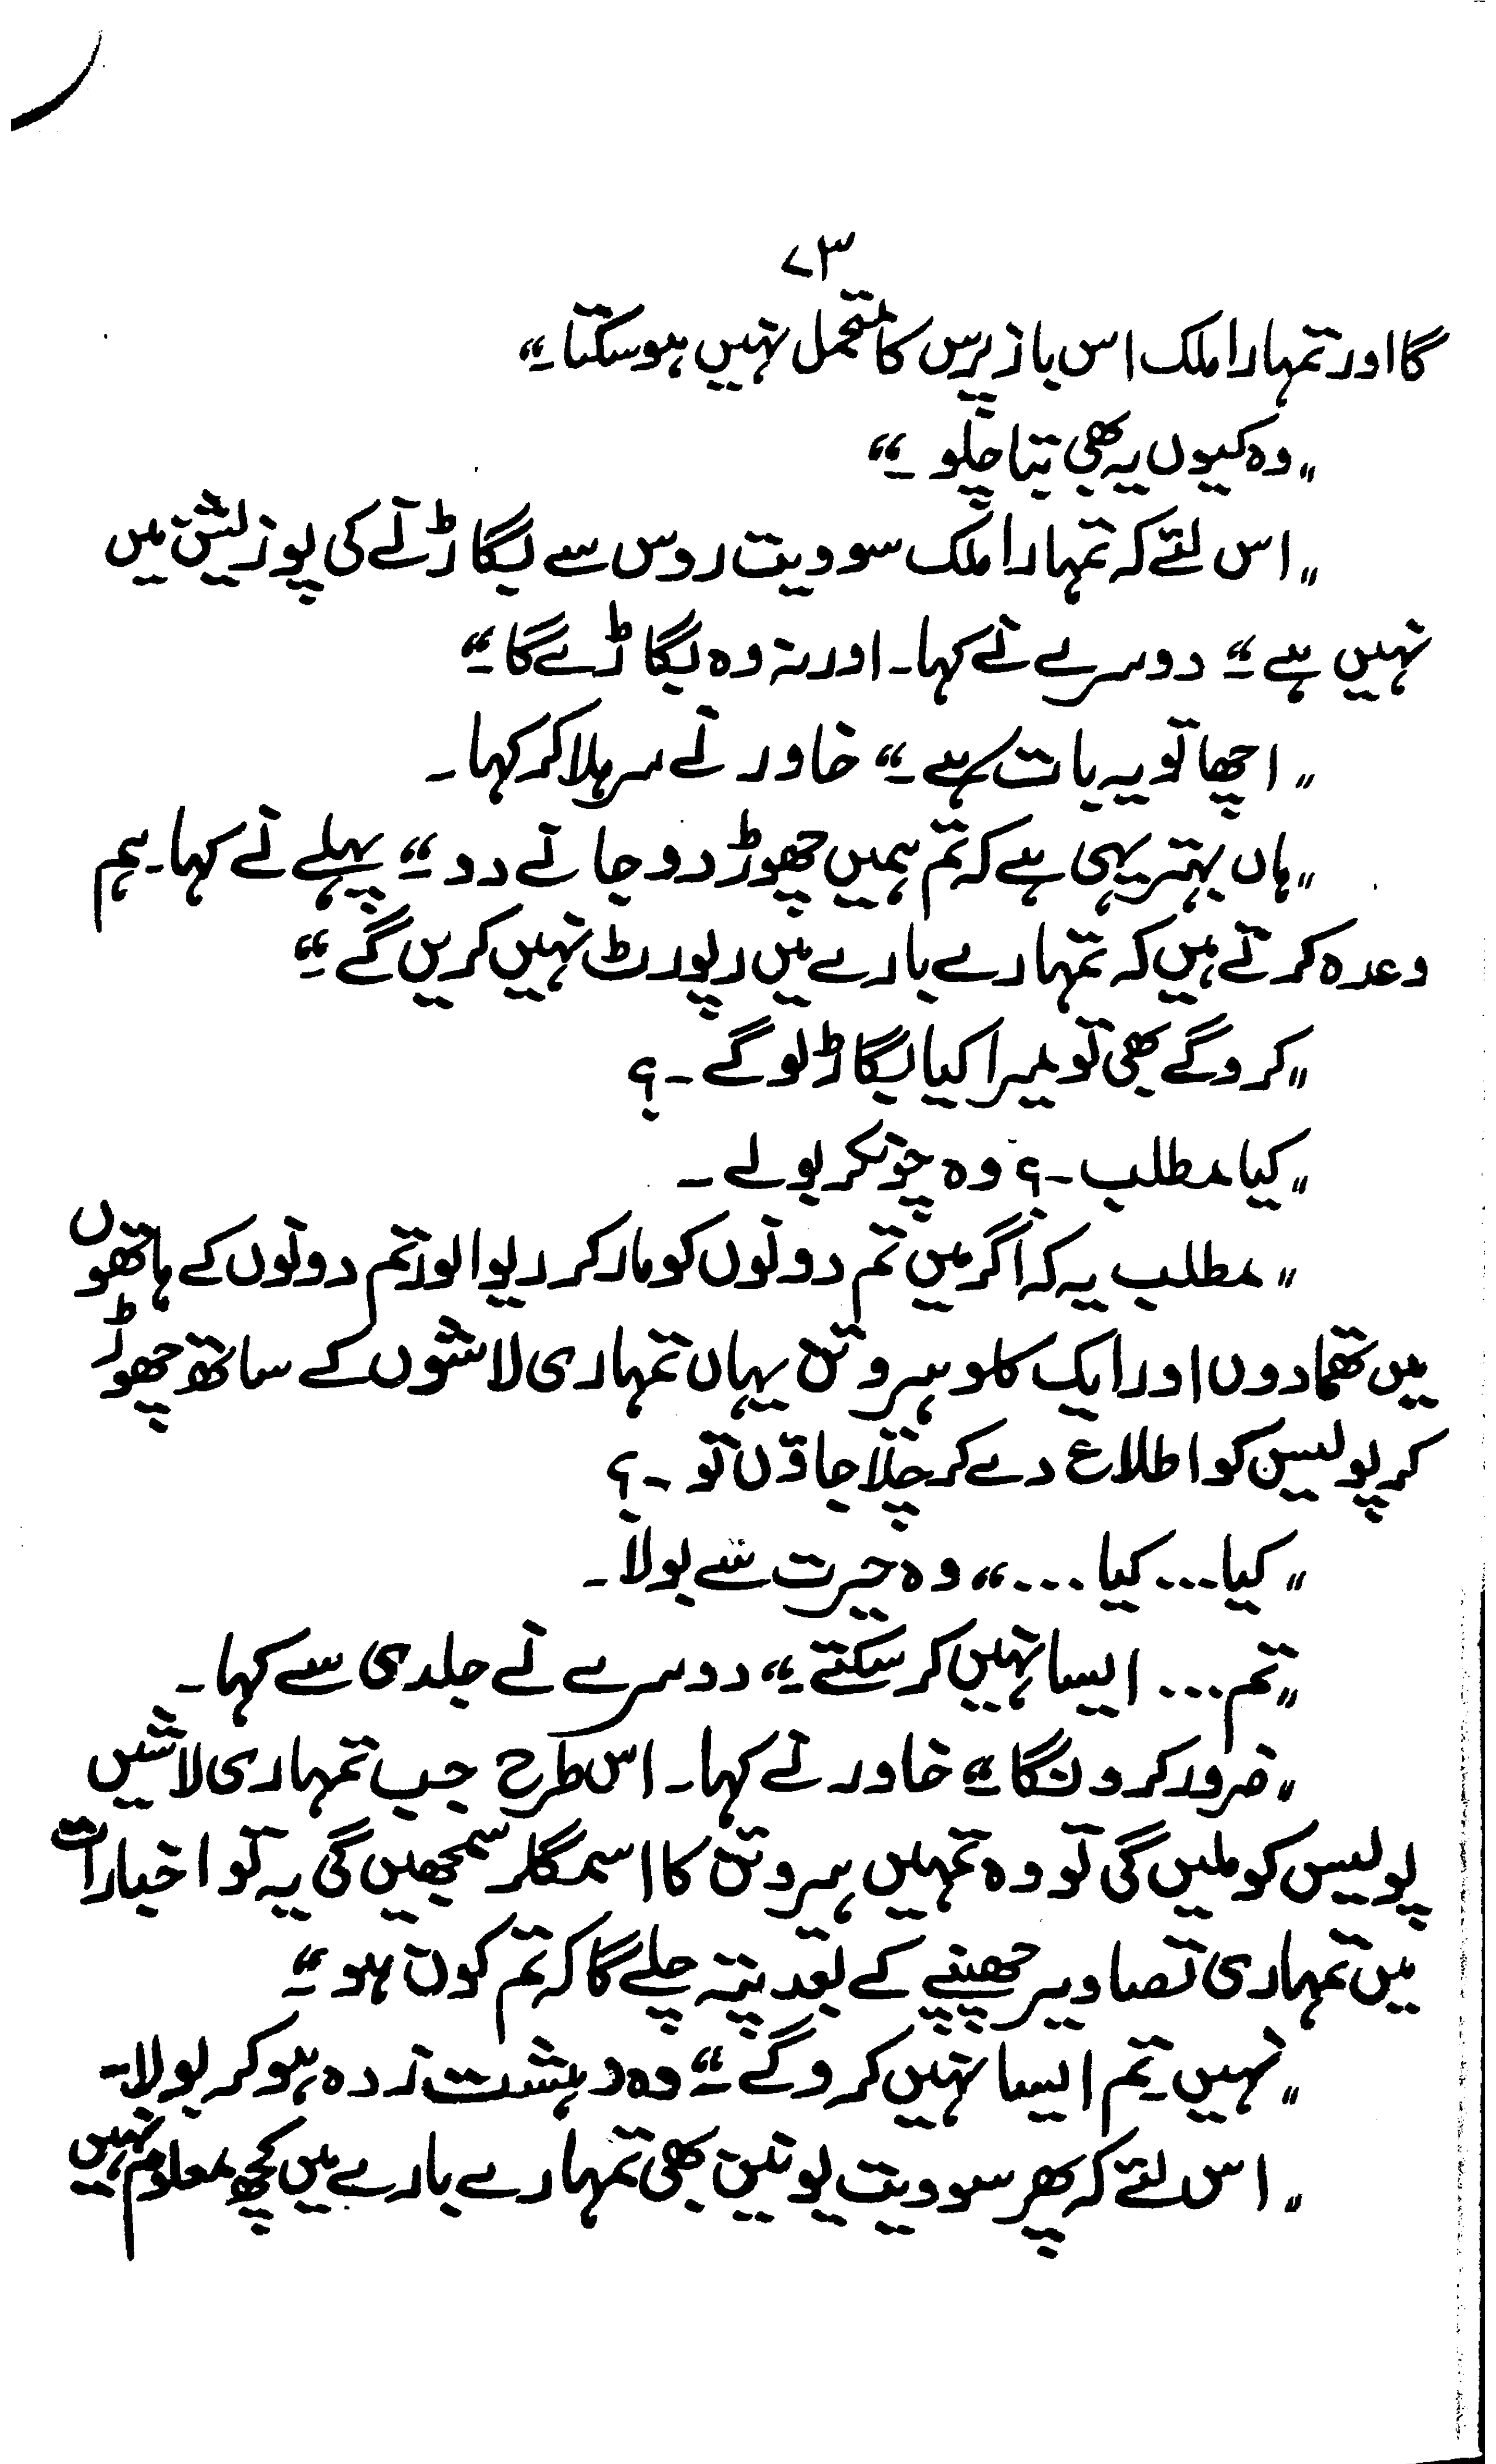 ۷۳
گا اور تمہارا ملک اس باز پرس کا متحمل نہیں ہو سکتا۔“
”وہ کیوں یہ بھی بتا چلو۔“
”اس لئے کہ تمہارا ملک سوویت روس سے بگاڑنے کی پوزیشن میں
نہیں ہے۔“ دوسرے نے کہا۔ اور نہ وہ بگاڑے گا۔“
”اچھا تو یہ بات ہے۔“ خاور نے سر ہلا کر کہا۔
”ہاں بہتر یہی ہے کہ تم ہمیں چھوڑ دو جانے دو۔“ پہلے نے کہا۔ ہم
وعدہ کرتے ہیں کہ تمہارے بارے میں رپورٹ نہیں کریں گے۔“
”کرو گے بھی تو میرا کیا بگاڑ لو گے۔؟
”کیا مطلب۔؟ وہ چونکر بولے۔
”مطلب یہ کہ اگر میں تم دونوں کو مار کر ریوالور تم دونوں کے ہاتھوں
میں تھما دوں اور ایک کلو ہیروئن یہاں تمہاری لاشوں کے ساتھ چھوڑ
کر پولیس کو اطلاع دے کر چلا جاؤں تو۔؟
”کیا... کیا...“ وہ حیرت سے بولا۔
”تم... ایسا نہیں کر سکتے۔“ دوسرے نے جلدی سے کہا۔
”ضرور کرونگا۔“ خاور نے کہا۔ اس طرح جب تمہاری لاشیں
پولیس کو ملیں گی تو وہ تمہیں ہیروئن کا اسمگلر سمجھیں گی یہ تو اخبارات
میں تمہاری تصاویر چھپنے کے بعد پتہ چلے گا کہ تم کون ہو۔“
”نہیں تم ایسا نہیں کرو گے۔“ وہ دہشت زدہ ہو کر بولا۔
”اس لئے کہ پھر سوویت یونین بھی تمہارے بارے میں کچھ معلوم نہیں